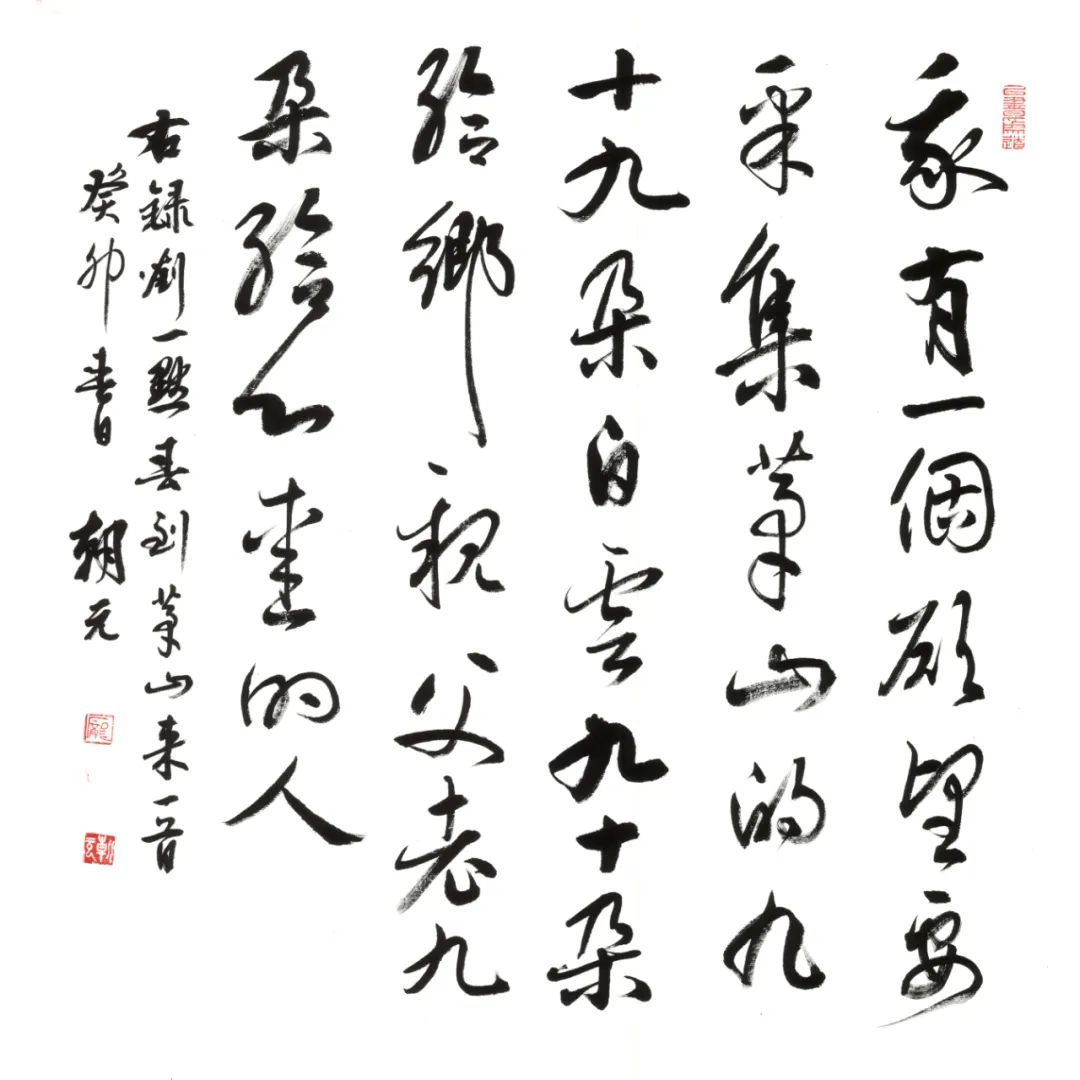 我有一個願望要
采集山的九
十九朵白雲九十朵
給鄉親父老九
朵給心愛的人
右録劉一點春到山来一首
癸卯書朝元